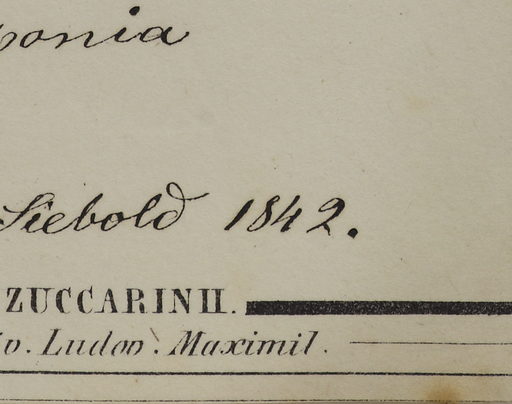 ponia
Siebold 1842.
ZUCCARINII.
iv. Ludov. Maximil.